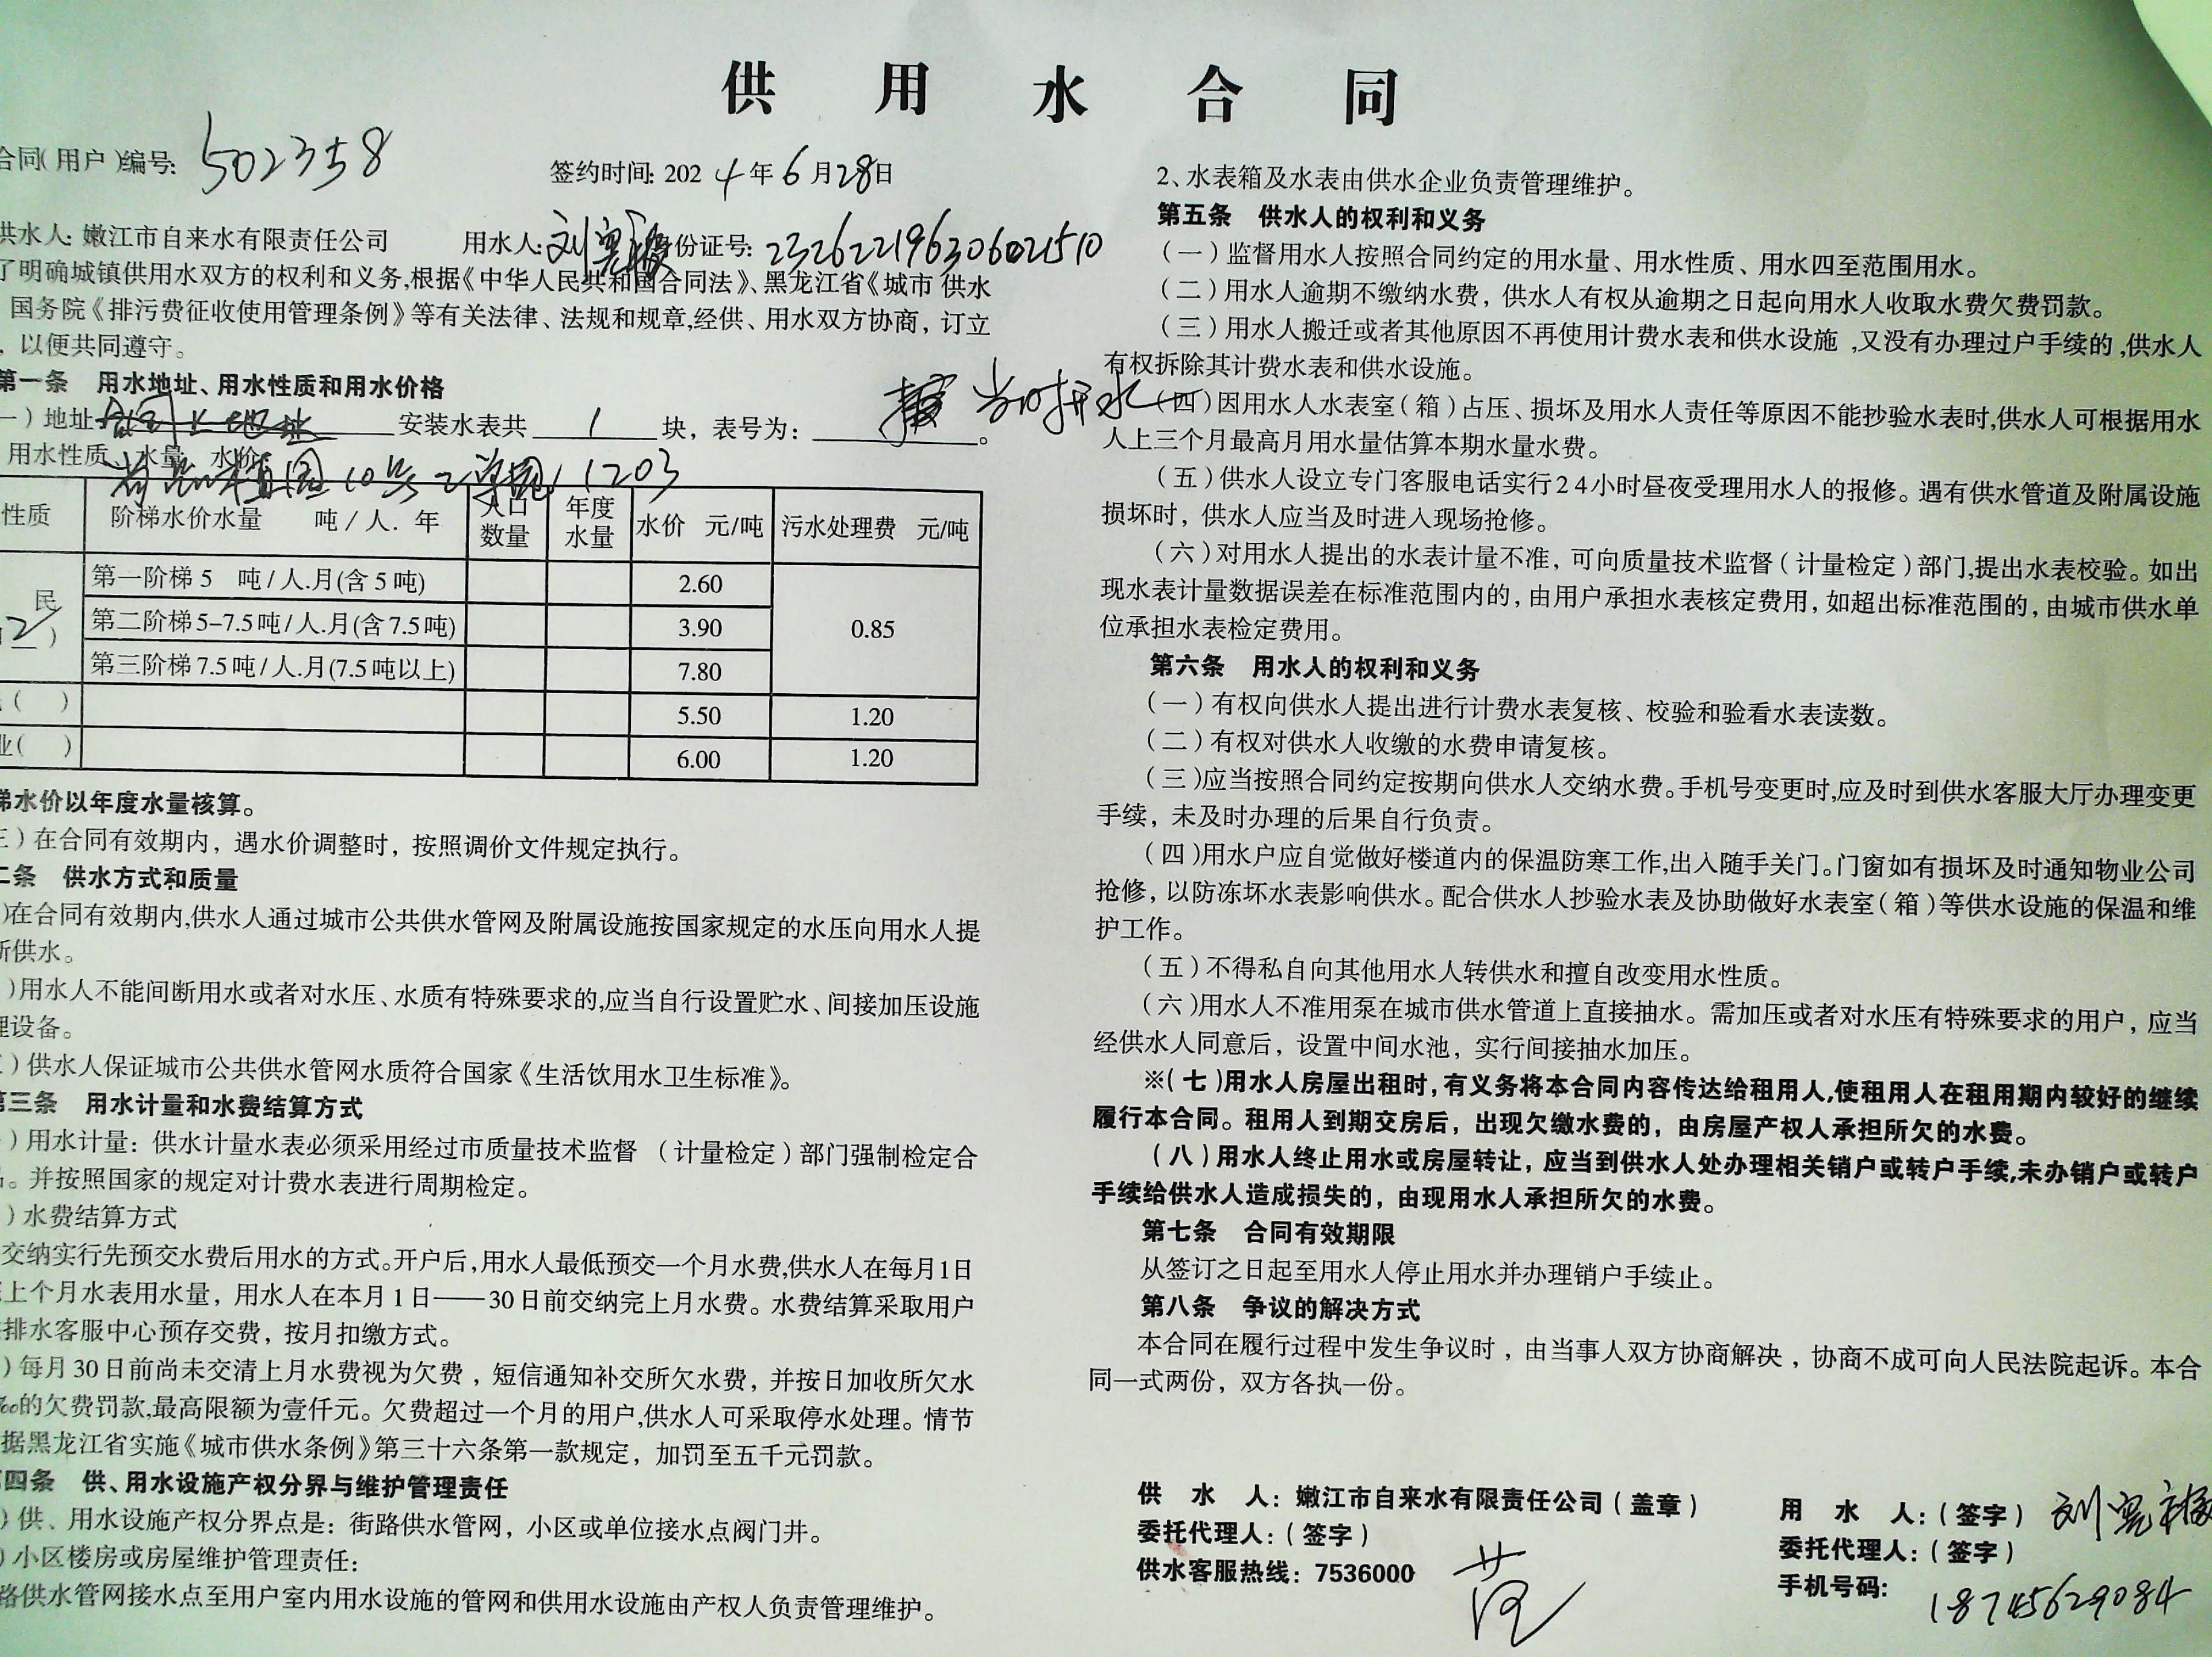 供用水合同
合同(用户)编号: 502358
签约时间: 2024年6月28日
供水人: 嫩江市自来水有限责任公司 用水人: 刘 份证号: 232622196306021510
了明确城镇供用水双方的权利和义务,根据《中华人民共和国合同法》、黑龙江省《城市 供水
国务院《排污费征收使用管理条例》等有关法律、法规和规章,经供、用水双方协商，订立
，以便共同遵守。
第一条 用水地址、用水性质和用水价格
一）地址 安装水表共 1 块，表号为： 。
用水性质、水量、水价
10 2单元 1203
性质 阶梯水价水量 吨/人.年 人口数量 年度水量 水价 元/吨 污水处理费 元/吨
民 2 ) 第一阶梯 5 吨/人.月(含5吨) 2.60 0.85
第二阶梯 5–7.5吨/人.月(含7.5吨) 3.90
第三阶梯 7.5吨/人.月(7.5吨以上) 7.80
( ) 5.50 1.20
业( ) 6.00 1.20
梯水价以年度水量核算。
三）在合同有效期内，遇水价调整时，按照调价文件规定执行。
二条 供水方式和质量
)在合同有效期内,供水人通过城市公共供水管网及附属设施按国家规定的水压向用水人提
所供水。
)用水人不能间断用水或者对水压、水质有特殊要求的,应当自行设置贮水、间接加压设施
理设备。
)供水人保证城市公共供水管网水质符合国家《生活饮用水卫生标准》。
第三条 用水计量和水费结算方式
)用水计量：供水计量水表必须采用经过市质量技术监督 （计量检定）部门强制检定合
。并按照国家的规定对计费水表进行周期检定。
)水费结算方式
交纳实行先预交水费后用水的方式。开户后,用水人最低预交一个月水费,供水人在每月1日
上个月水表用水量，用水人在本月1日——30日前交纳完上月水费。水费结算采取用户
排水客服中心预存交费，按月扣缴方式。
)每月30日前尚未交清上月水费视为欠费，短信通知补交所欠水费，并按日加收所欠水
的欠费罚款,最高限额为壹仟元。欠费超过一个月的用户,供水人可采取停水处理。情节
据黑龙江省实施《城市供水条例》第三十六条第一款规定，加罚至五千元罚款。
四条 供、用水设施产权分界与维护管理责任
)供、用水设施产权分界点是：街路供水管网，小区或单位接水点阀门井。
)小区楼房或房屋维护管理责任：
路供水管网接水点至用户室内用水设施的管网和供用水设施由产权人负责管理维护。
2、水表箱及水表由供水企业负责管理维护。
第五条 供水人的权利和义务
（一）监督用水人按照合同约定的用水量、用水性质、用水四至范围用水。
（二）用水人逾期不缴纳水费，供水人有权从逾期之日起向用水人收取水费欠费罚款。
（三）用水人搬迁或者其他原因不再使用计费水表和供水设施,又没有办理过户手续的,供水人
有权拆除其计费水表和供水设施。
（四）因用水人水表室（箱）占压、损坏及用水人责任等原因不能抄验水表时,供水人可根据用水
人上三个月最高月用水量估算本期水量水费。
（五）供水人设立专门客服电话实行24小时昼夜受理用水人的报修。遇有供水管道及附属设施
损坏时，供水人应当及时进入现场抢修。
（六）对用水人提出的水表计量不准，可向质量技术监督（计量检定）部门,提出水表校验。如出
现水表计量数据误差在标准范围内的，由用户承担水表核定费用，如超出标准范围的，由城市供水单
位承担水表检定费用。
第六条 用水人的权利和义务
（一）有权向供水人提出进行计费水表复核、校验和验看水表读数。
（二）有权对供水人收缴的水费申请复核。
（三）应当按照合同约定按期向供水人交纳水费。手机号变更时,应及时到供水客服大厅办理变更
手续，未及时办理的后果自行负责。
（四）用水户应自觉做好楼道内的保温防寒工作,出入随手关门。门窗如有损坏及时通知物业公司
抢修，以防冻坏水表影响供水。配合供水人抄验水表及协助做好水表室（箱）等供水设施的保温和维
护工作。
（五）不得私自向其他用水人转供水和擅自改变用水性质。
（六）用水人不准用泵在城市供水管道上直接抽水。需加压或者对水压有特殊要求的用户，应当
经供水人同意后，设置中间水池，实行间接抽水加压。
※（七）用水人房屋出租时,有义务将本合同内容传达给租用人,使租用人在租用期内较好的继续
履行本合同。租用人到期交房后，出现欠缴水费的，由房屋产权人承担所欠的水费。
（八）用水人终止用水或房屋转让，应当到供水人处办理相关销户或转户手续,未办销户或转户
手续给供水人造成损失的，由现用水人承担所欠的水费。
第七条 合同有效期限
从签订之日起至用水人停止用水并办理销户手续止。
第八条 争议的解决方式
本合同在履行过程中发生争议时，由当事人双方协商解决，协商不成可向人民法院起诉。本合
同一式两份，双方各执一份。
供 水 人：嫩江市自来水有限责任公司（盖章）
委托代理人：（签字）
供水客服热线：7536000
用 水 人：（签字） 刘
委托代理人：（签字）
手机号码： 18745629084